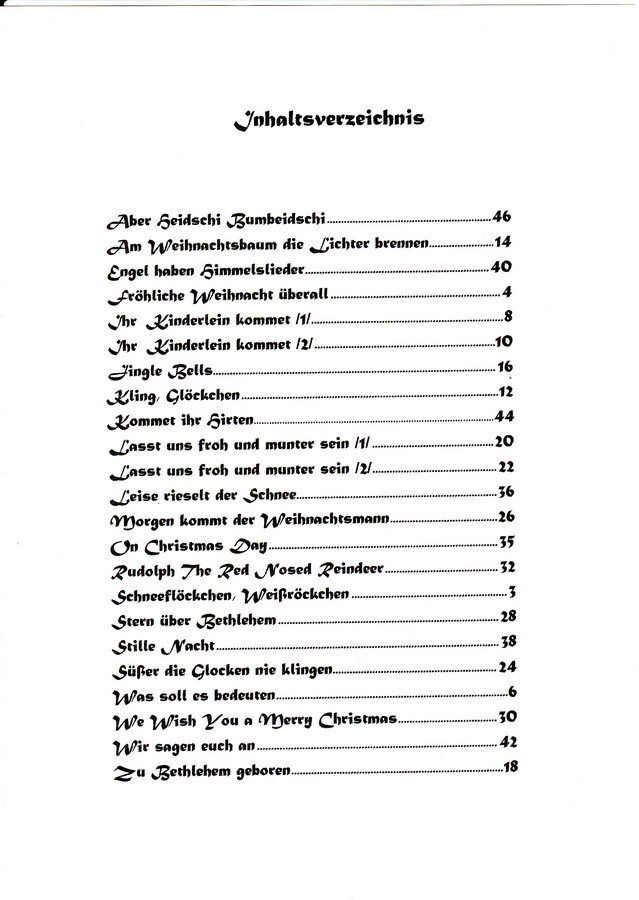 Inhaltsverzeichnis
Aber Heidschi Bumbeidschi.....46
Am Weihnachtsbaum die Lichter brennen.....14
Engel haben Himmelslieder.....40
Fröhliche Weihnacht überall.....4
Ihr Kinderlein kommet /1/.....8
Ihr Kinderlein kommet /2/.....10
Jingle Bells.....16
Kling, Glöckchen.....12
Kommet ihr Hirten.....44
Lasst uns froh und munter sein /1/.....20
Lasst uns froh und munter sein /2/.....22
Leise rieselt der Schnee.....36
Morgen kommt der Weihnachtsmann.....26
On Christmas Day.....35
Rudolph The Red Nosed Reindeer.....32
Schneeflöckchen, Weißröckchen.....3
Stern über Bethlehem.....28
Stille Nacht.....38
Süßer die Glocken nie klingen.....24
Was soll es bedeuten.....6
We Wish You a Merry Christmas.....30
Wir sagen euch an.....42
Zu Bethlehem geboren.....18